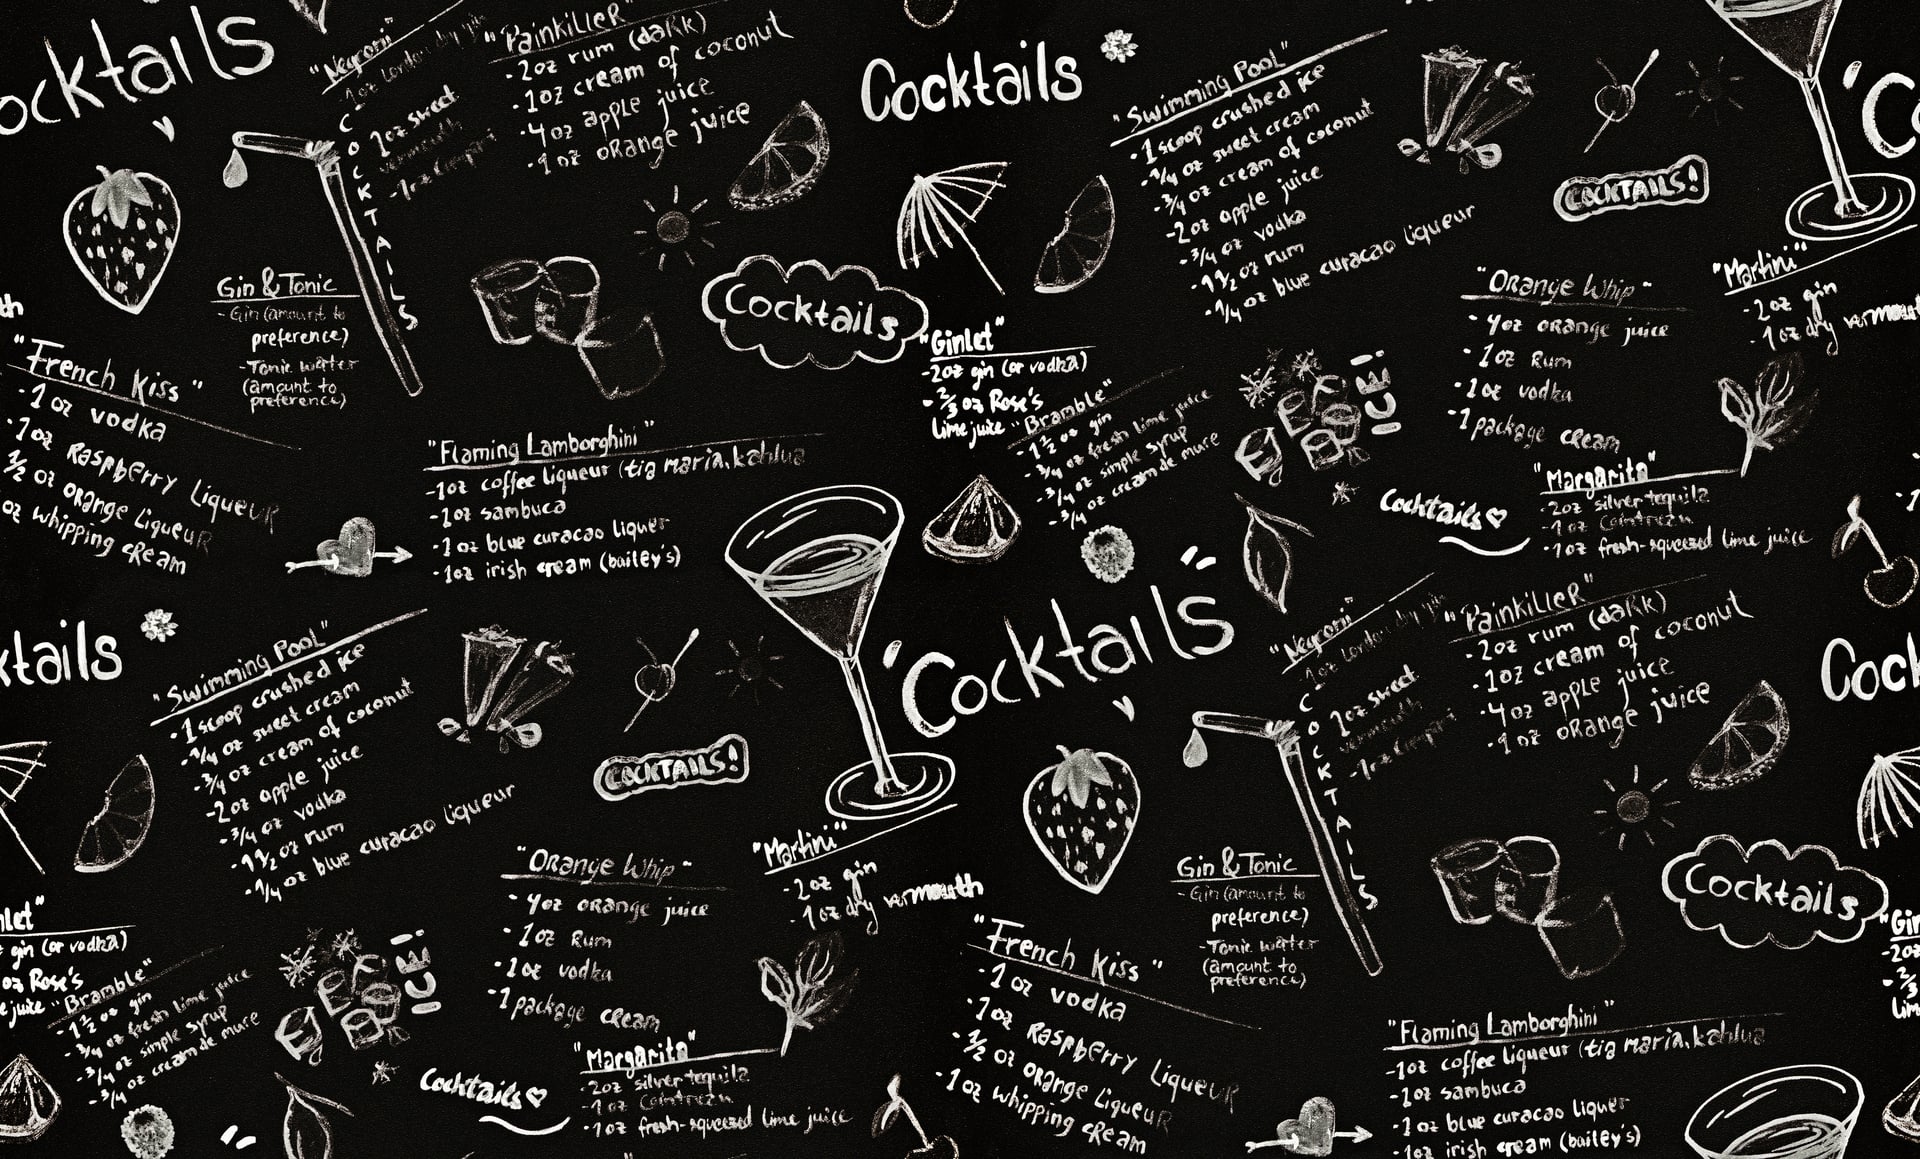 Cocktails
"Negroni"
1oz London dry gin
1oz sweet
vermouth
-1oz Campari
COCKTAILS
"PainkilleR"
·2oz rum (daRk)
·1oz cream of coconut
·4oz apple juice
·1oz oRange juice
Cocktails
"Swimming PooL"
·1scoop crushed ice
·1/4 oz sweet cream
·3/4 oz cream of coconut
-2oz apple juice
·3/4 oz vodka
·1 1/2 oz rum
·1/4 oz blue curacao liqueur
COCKTAILS!
"Martini"
-2oz gin
·1oz dry vermouth
Gin & Tonic
- Gin (amount to
preference)
-Tonic water
(amount to
preference)
Cocktails
"Orange Whip"
·4oz oRange juice
·1oz Rum
·1oz vodka
·1package cReam
"French Kiss"
·1oz vodka
·1oz RaspbeRRy LiqueuR
1/2 oz oRange LiqueuR
oz whipping cReam
"Gimlet"
-2oz gin (or vodka)
·2/3 oz Rose's
lime juice
"Bramble"
·1 1/2 oz gin
·3/4 oz fresh lime juice
·3/4 oz simple syrup
·3/4 oz cream de mure
ICE!
"Flaming Lamborghini"
-1oz coffee liqueur (tia maria, kahlua
-1oz sambuca
·1oz blue curacao liquer
·1oz irish cream (bailey's)
Cocktails
"Margarita"
·2oz silver tequila
·1oz Cointreau
·1oz fresh-squeezed lime juice
ktails
"Swimming PooL"
·1scoop crushed ice
·1/4 oz sweet cream
·3/4 oz cream of coconut
-2oz apple juice
·3/4 oz vodka
·1 1/2 oz rum
·1/4 oz blue curacao liqueur
COCKTAILS!
'Cocktails
"Negroni"
1oz London dry gin
1oz sweet
vermouth
-1oz Campari
COCKTAILS
"PainkilleR"
·2oz rum (daRk)
·1oz cream of coconut
·4oz apple juice
·1oz oRange juice
Cock
"Martini"
-2oz gin
·1oz dry vermouth
"Orange Whip"
·4oz oRange juice
·1oz Rum
·1oz vodka
·1package cReam
Gin & Tonic
- Gin (amount to
preference)
-Tonic water
(amount to
preference)
Cocktails
mlet"
gin (or vodka)
oz Rose's
juice
"Bramble"
·1 1/2 oz gin
·3/4 oz fresh lime juice
·3/4 oz simple syrup
·3/4 oz cream de mure
ICE!
"French Kiss"
·1oz vodka
·1oz RaspbeRRy LiqueuR
·1/2 oz oRange LiqueuR
·1oz whipping cReam
"Flaming Lamborghini"
-1oz coffee liqueur (tia maria, kahlua
-1oz sambuca
·1oz blue curacao liquer
·1oz irish cream (bailey's)
Cocktails
"Margarita"
·2oz silver tequila
·1oz Cointreau
·1oz fresh-squeezed lime juice